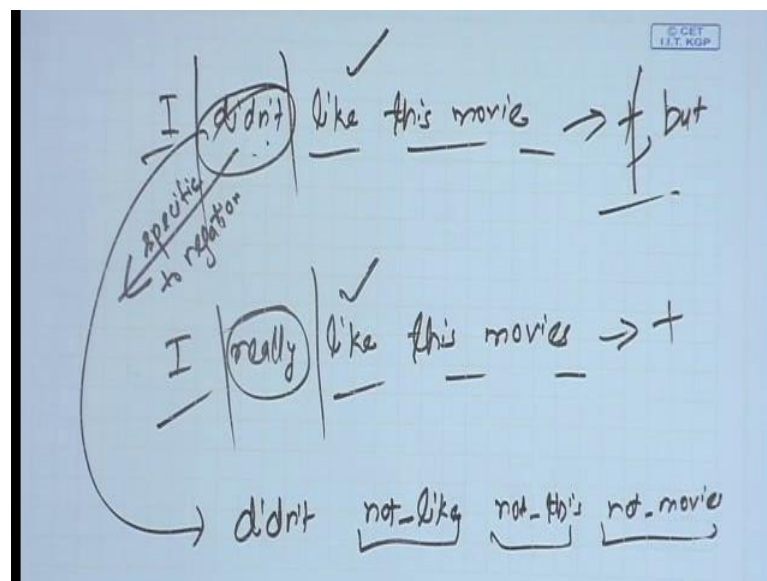 © CET
I.I.T. KGP
I didn't like this movie → +, but
specific
to negation
I really like this movies → +
didn't not_like not_this not_movie